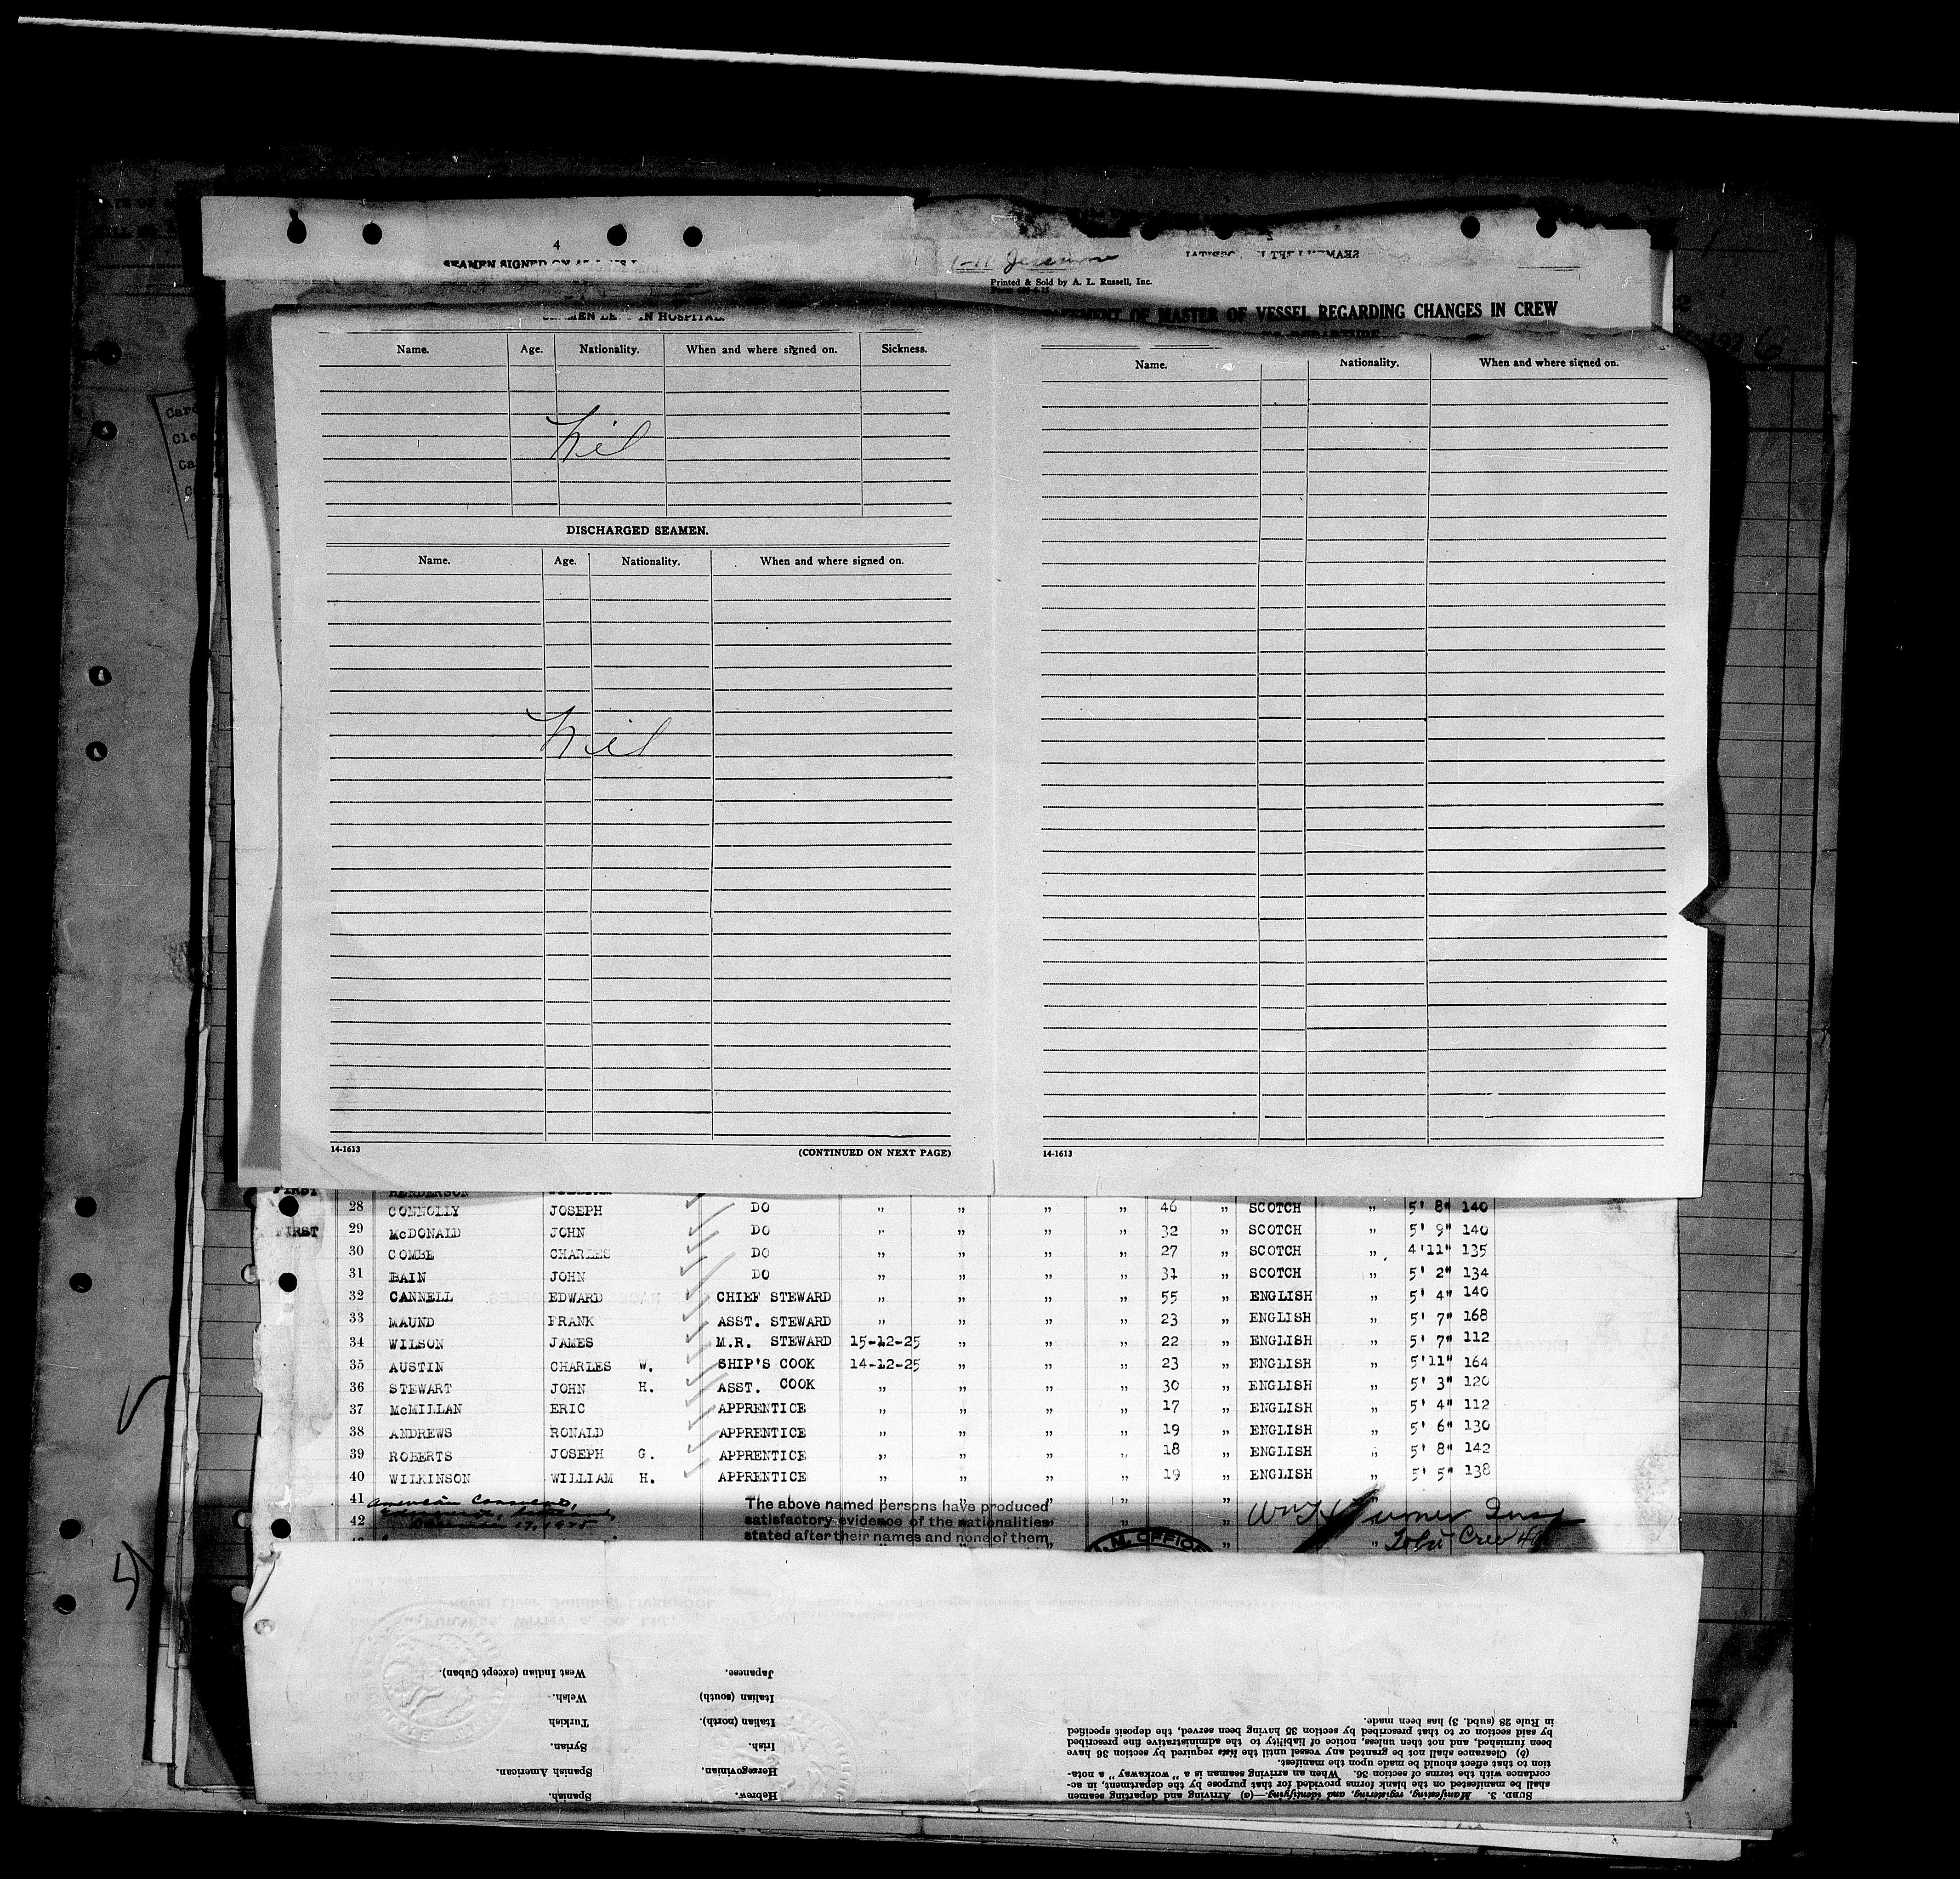 4
Printed & Sold by A. L. Russell, Inc.
OF MASTER OF VESSEL REGARDING CHANGES IN CREW
IN HOSPITAL.
Name. Age. Nationality. When and where signed on. Sickness.
Nil
DISCHARGED SEAMEN.
Name. Age. Nationality. When and where signed on.
Nil
14-1613 (CONTINUED ON NEXT PAGE)
Name. Nationality. When and where signed on.
14-1613
FIRST HENDERSON
28 CONNOLLY JOSEPH DO " " " " 46 " SCOTCH " 5' 8" 140
FIRST 29 McDONALD JOHN DO " " " " 32 " SCOTCH " 5' 9" 140
30 COMBE CHARLES DO " " " " 27 " SCOTCH " 4'11" 135
31 BAIN JOHN DO " " " " 31 " SCOTCH " 5' 2" 134
32 CANNELL EDWARD CHIEF STEWARD " " " " 55 " ENGLISH " 5' 4" 140
33 MAUND FRANK ASST. STEWARD " " " " 23 " ENGLISH " 5' 7" 168
34 WILSON JAMES M.R. STEWARD 15-12-25 " " " 22 " ENGLISH " 5' 7" 112
35 AUSTIN CHARLES W. SHIP'S COOK 14-12-25 " " " 23 " ENGLISH " 5'11" 164
36 STEWART JOHN H. ASST. COOK " " " " 30 " ENGLISH " 5' 3" 120
37 McMILLAN ERIC APPRENTICE " " " " 17 " ENGLISH " 5' 4" 112
38 ANDREWS RONALD APPRENTICE " " " " 19 " ENGLISH " 5' 6" 130
39 ROBERTS JOSEPH G. APPRENTICE " " " " 18 " ENGLISH " 5' 8" 142
40 WILKINSON WILLIAM H. APPRENTICE " " " " 19 " ENGLISH " 5' 5" 138
41 American The above named persons have produced
42 satisfactory evidence of the nationalities
stated after their names and none of them
Spanish. Hebrew.
Spanish American. Herzegovinian.
Syrian. Irish.
Turkish Italian (north).
Welsh. Italian (south)
West Indian (except Cuban). Japanese.
SUBD. 3. Manifesting, registering, and identifying.—(a) Arriving and departing seamen
shall be manifested on the blank forms provided for that purpose by the department, in ac-
cordance with the terms of section 36. When an arriving seaman is a "workaway" a nota-
tion to that effect should be made upon the manifest.
(b) Clearance shall not be granted any vessel until the lists required by section 36 have
been furnished, and not then unless, notice of liability to the administrative fine prescribed
by said section or to that prescribed by section 35 having been served, the deposit specified
in Rule 28 (subd. 3) has been made.